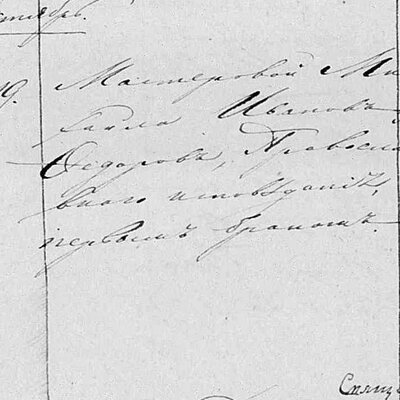 9. Мастеровой Ми-
хаила Ивановъ
Ѳедоровъ, Правосла
внаго исповѣданія,
первымъ бракомъ.